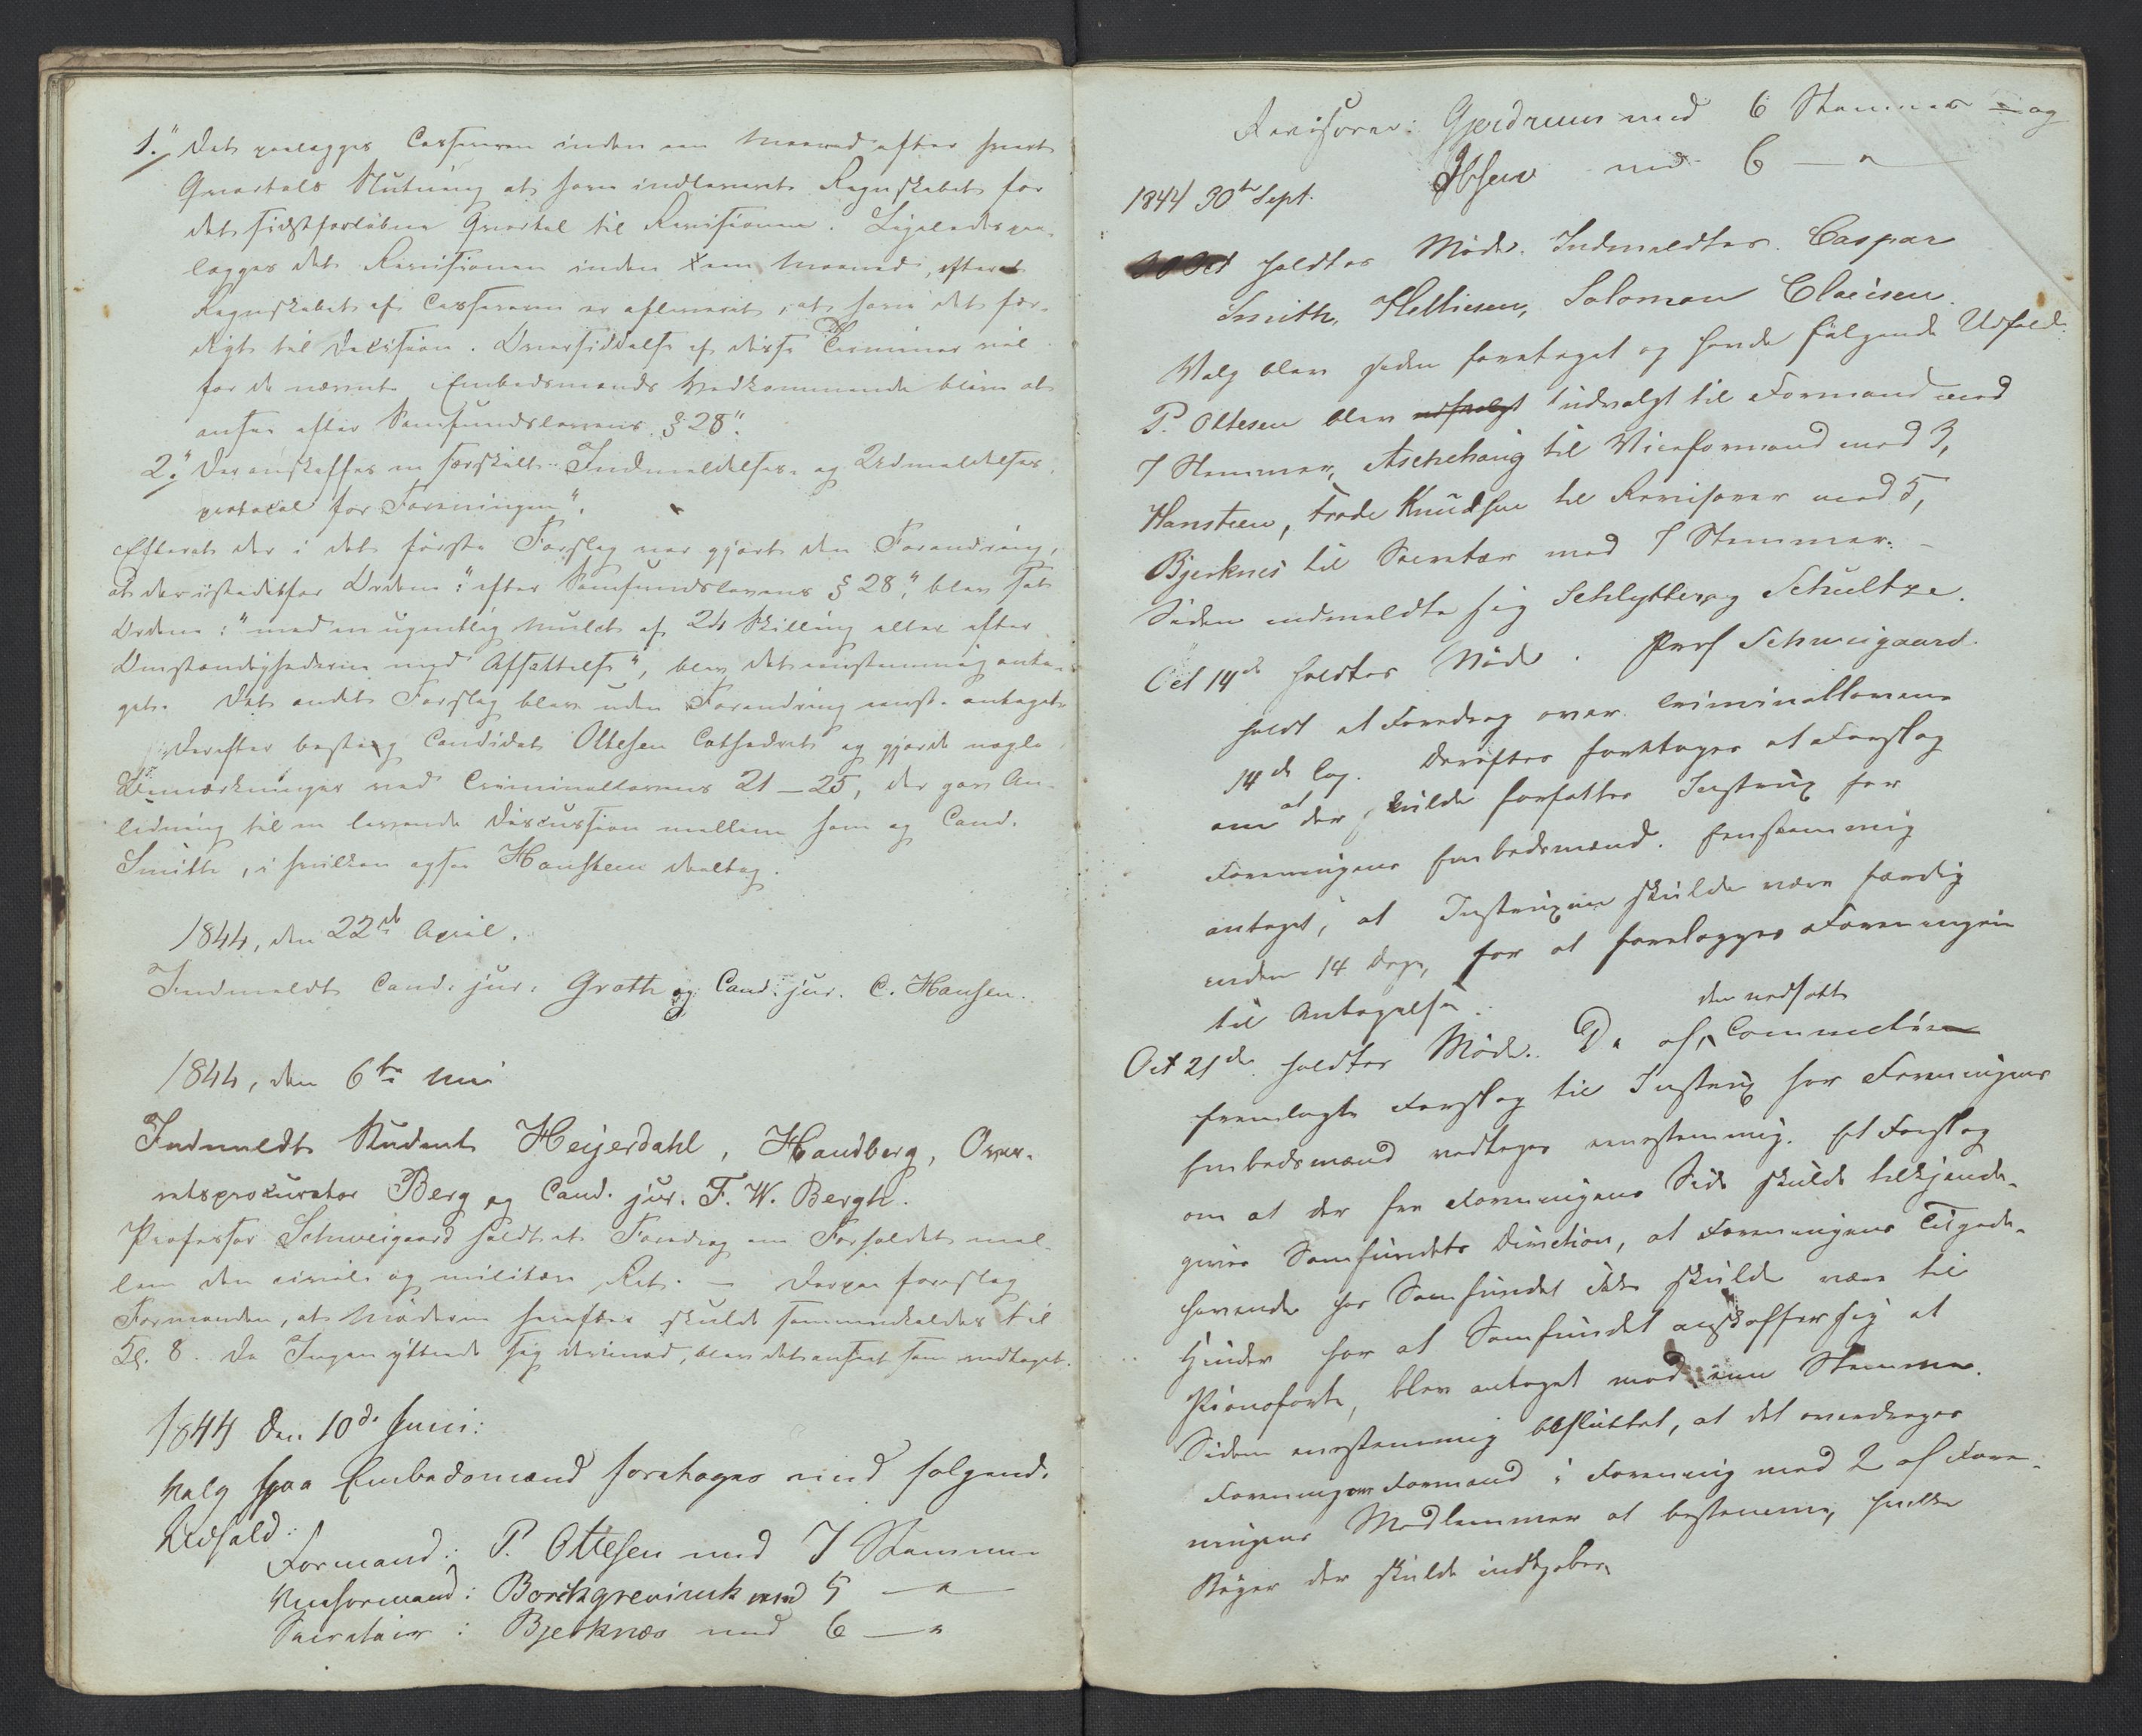 1. "Det paalægges Cassereren inden een Maaned efter hvert
Qvartals Slutning at have indleveret Regnskabet for
det sidstforløbne Qvartal til Revisionen. Ligeledes paa-
lægges det Revisionen inden een Maaned, efterat
Regnskabet af Cassereren er afleveret, at have det fær-
digt til Decision. Oversiddelse af disse Terminer vil
for de nævnte Embedsmænds Vedkommende blive at
ansee efter Samfundslovens § 28".
2. "Der anskaffes en særskilt Indmeldelses- og Udmeldelses-
protocol for Foreningen".
Efterat der i det første Forslag var gjort den Forandring,
at der istedetfor Ordene: "efter Samfundslovens § 28", blev sat
Ordene: "med en ugentlig Mulct af 24 Skilling eller efter
Omstændighederne med Afsættelse", blev det eenstemmig anta-
get. Det andet Forslag blev uden Forandring eenst. antaget.
Derefter besteg Candidat Ottesen Cathedret og gjorde nogle
Bemærkninger ved Criminallovens 21–25, der gav An-
ledning til en levende Discussion mellem ham og Cand.
Smith, i hvilken ogsaa Hansteen deeltog.
1844, den 22de April.
Indmeldt Cand. jur. Groth og Cand. jur. C. Hansen.
1844, den 6te Mai
Indmeldt Student Heyerdahl, Handberg, Over-
retsprocurator Berg og Cand. jur. F. W. Bergh.
Professor Schweigaard holdt et Foredrag om Forholdet mel-
lem den civile og militære Ret. – Derpaa foreslog
Formanden, at Møderne herefter skulde sammenkaldes til
Kl. 8. Da Ingen yttrede sig derimod, blev det anseet som vedtaget.
1844 den 10de Juni:
Valg paa Embedsmænd foretoges med følgende
Udfald:
Formand: P. Ottesen med 7 Stemmer
Viceformand: Borchgrevinck med 5 — " —
Secretair: Bjerknæs med 6 — "
Revisorer: Gjerdrum med 6 Stemmer og
Ibsen med 6 — " —
1844 30te Sept.
holdtes Møde. Indmeldtes Caspar
Smith, Helliesen, Solomon Claüsen.
Valg blev siden foretaget og havde følgende Udfald:
P. Ottesen blev udvalgt til Formand med
7 Stemmer, Aschehoug til Viceformand med 3,
Hansteen, Frode Knudsen til Revisorer med 5,
Bjerknes til Secretær med 7 Stemmer. –
Siden indmeldte sig Schlytter og Schultze.
Oct 14de holdtes Møde. Prof Schweigaard
holdt et Foredrag over Criminallovens
14de Cap. Derefter foretoges et Forslag
om at der skulde forfattes Instrux for
Foreningens Embedsmænd. Eenstemmig
antaget, at Instruxen skulde være færdig
inden 14 Dage, for at forelægges Foreningen
til Antagelse.
Oct 21de holdtes Møde. Da af den nedsatte Committee
fremlagte Forslag til Instrux for Foreningens
Embedsmænd vedtoges eenstemmig. Et Forslag
om at der fra Foreningens Side skulde tilkjende-
gives Samfundets Direction, at Foreningens Tilgode-
havende hos Samfundet ikke skulde være til
Hinder for at Samfundet anskaffer sig et
Pianoforte, blev antaget med een Stemme.
Siden eenstemmig besluttet, at det overdrages
Foreningens Formand i Forening med 2 af Fore-
ningens Medlemmer at bestemme, hvilke
Bøger der skulde indkjøbes.